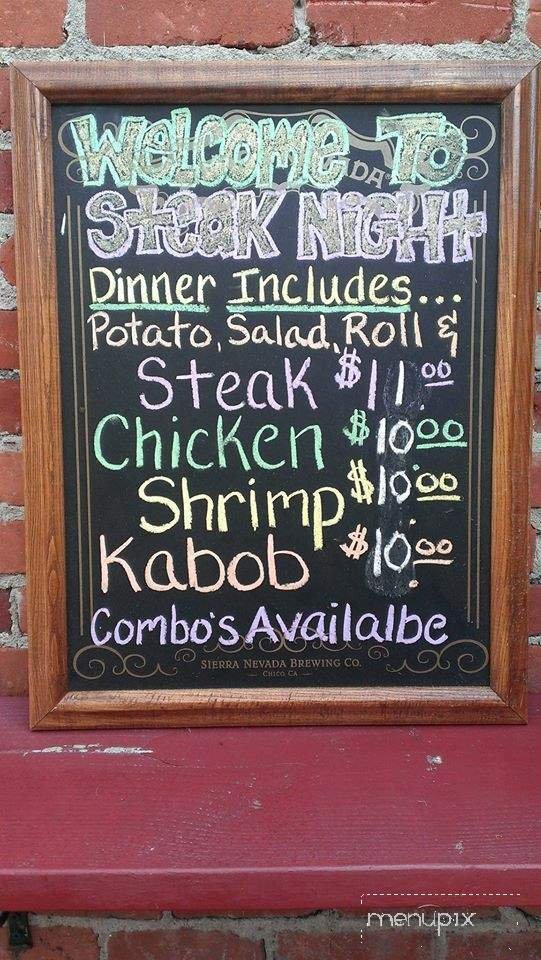 WELCOME TO
DA
STEAK NIGHT
Dinner Includes...
Potato, Salad, Roll &
Steak $11.00
Chicken $10.00
Shrimp $10.00
Kabob $10.00
Combo's Availalbe
SIERRA NEVADA BREWING CO.
CHICO, CA
menupix